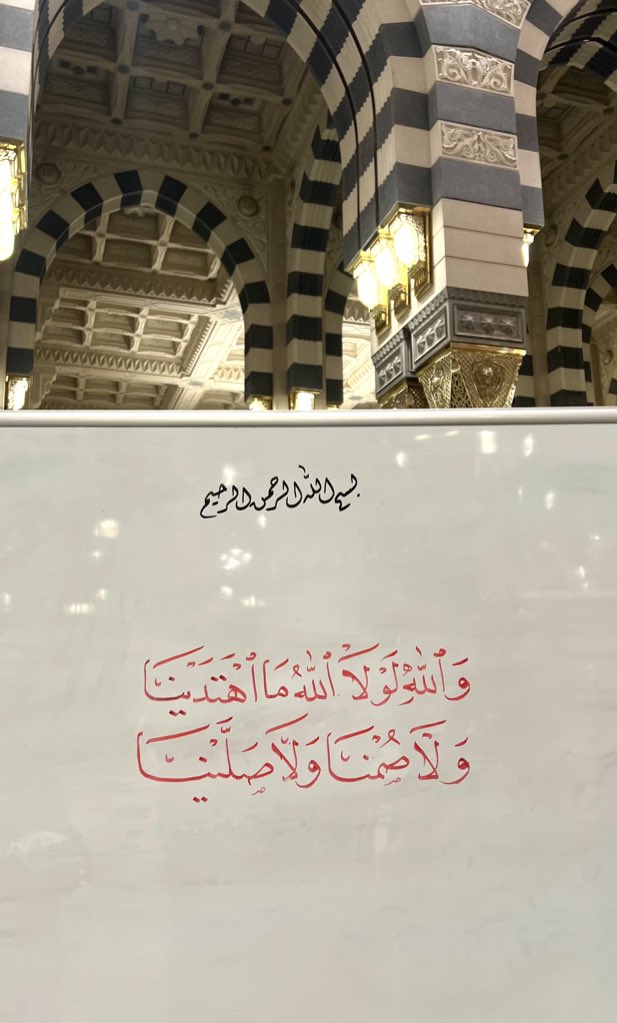 بسم الله الرحمن الرحيم
وَٱللَّهِ لَوْلَا ٱللَّهُ مَا ٱهْتَدَيْنَا
وَلَا صُمْنَا وَلَا صَلَّيْنَا